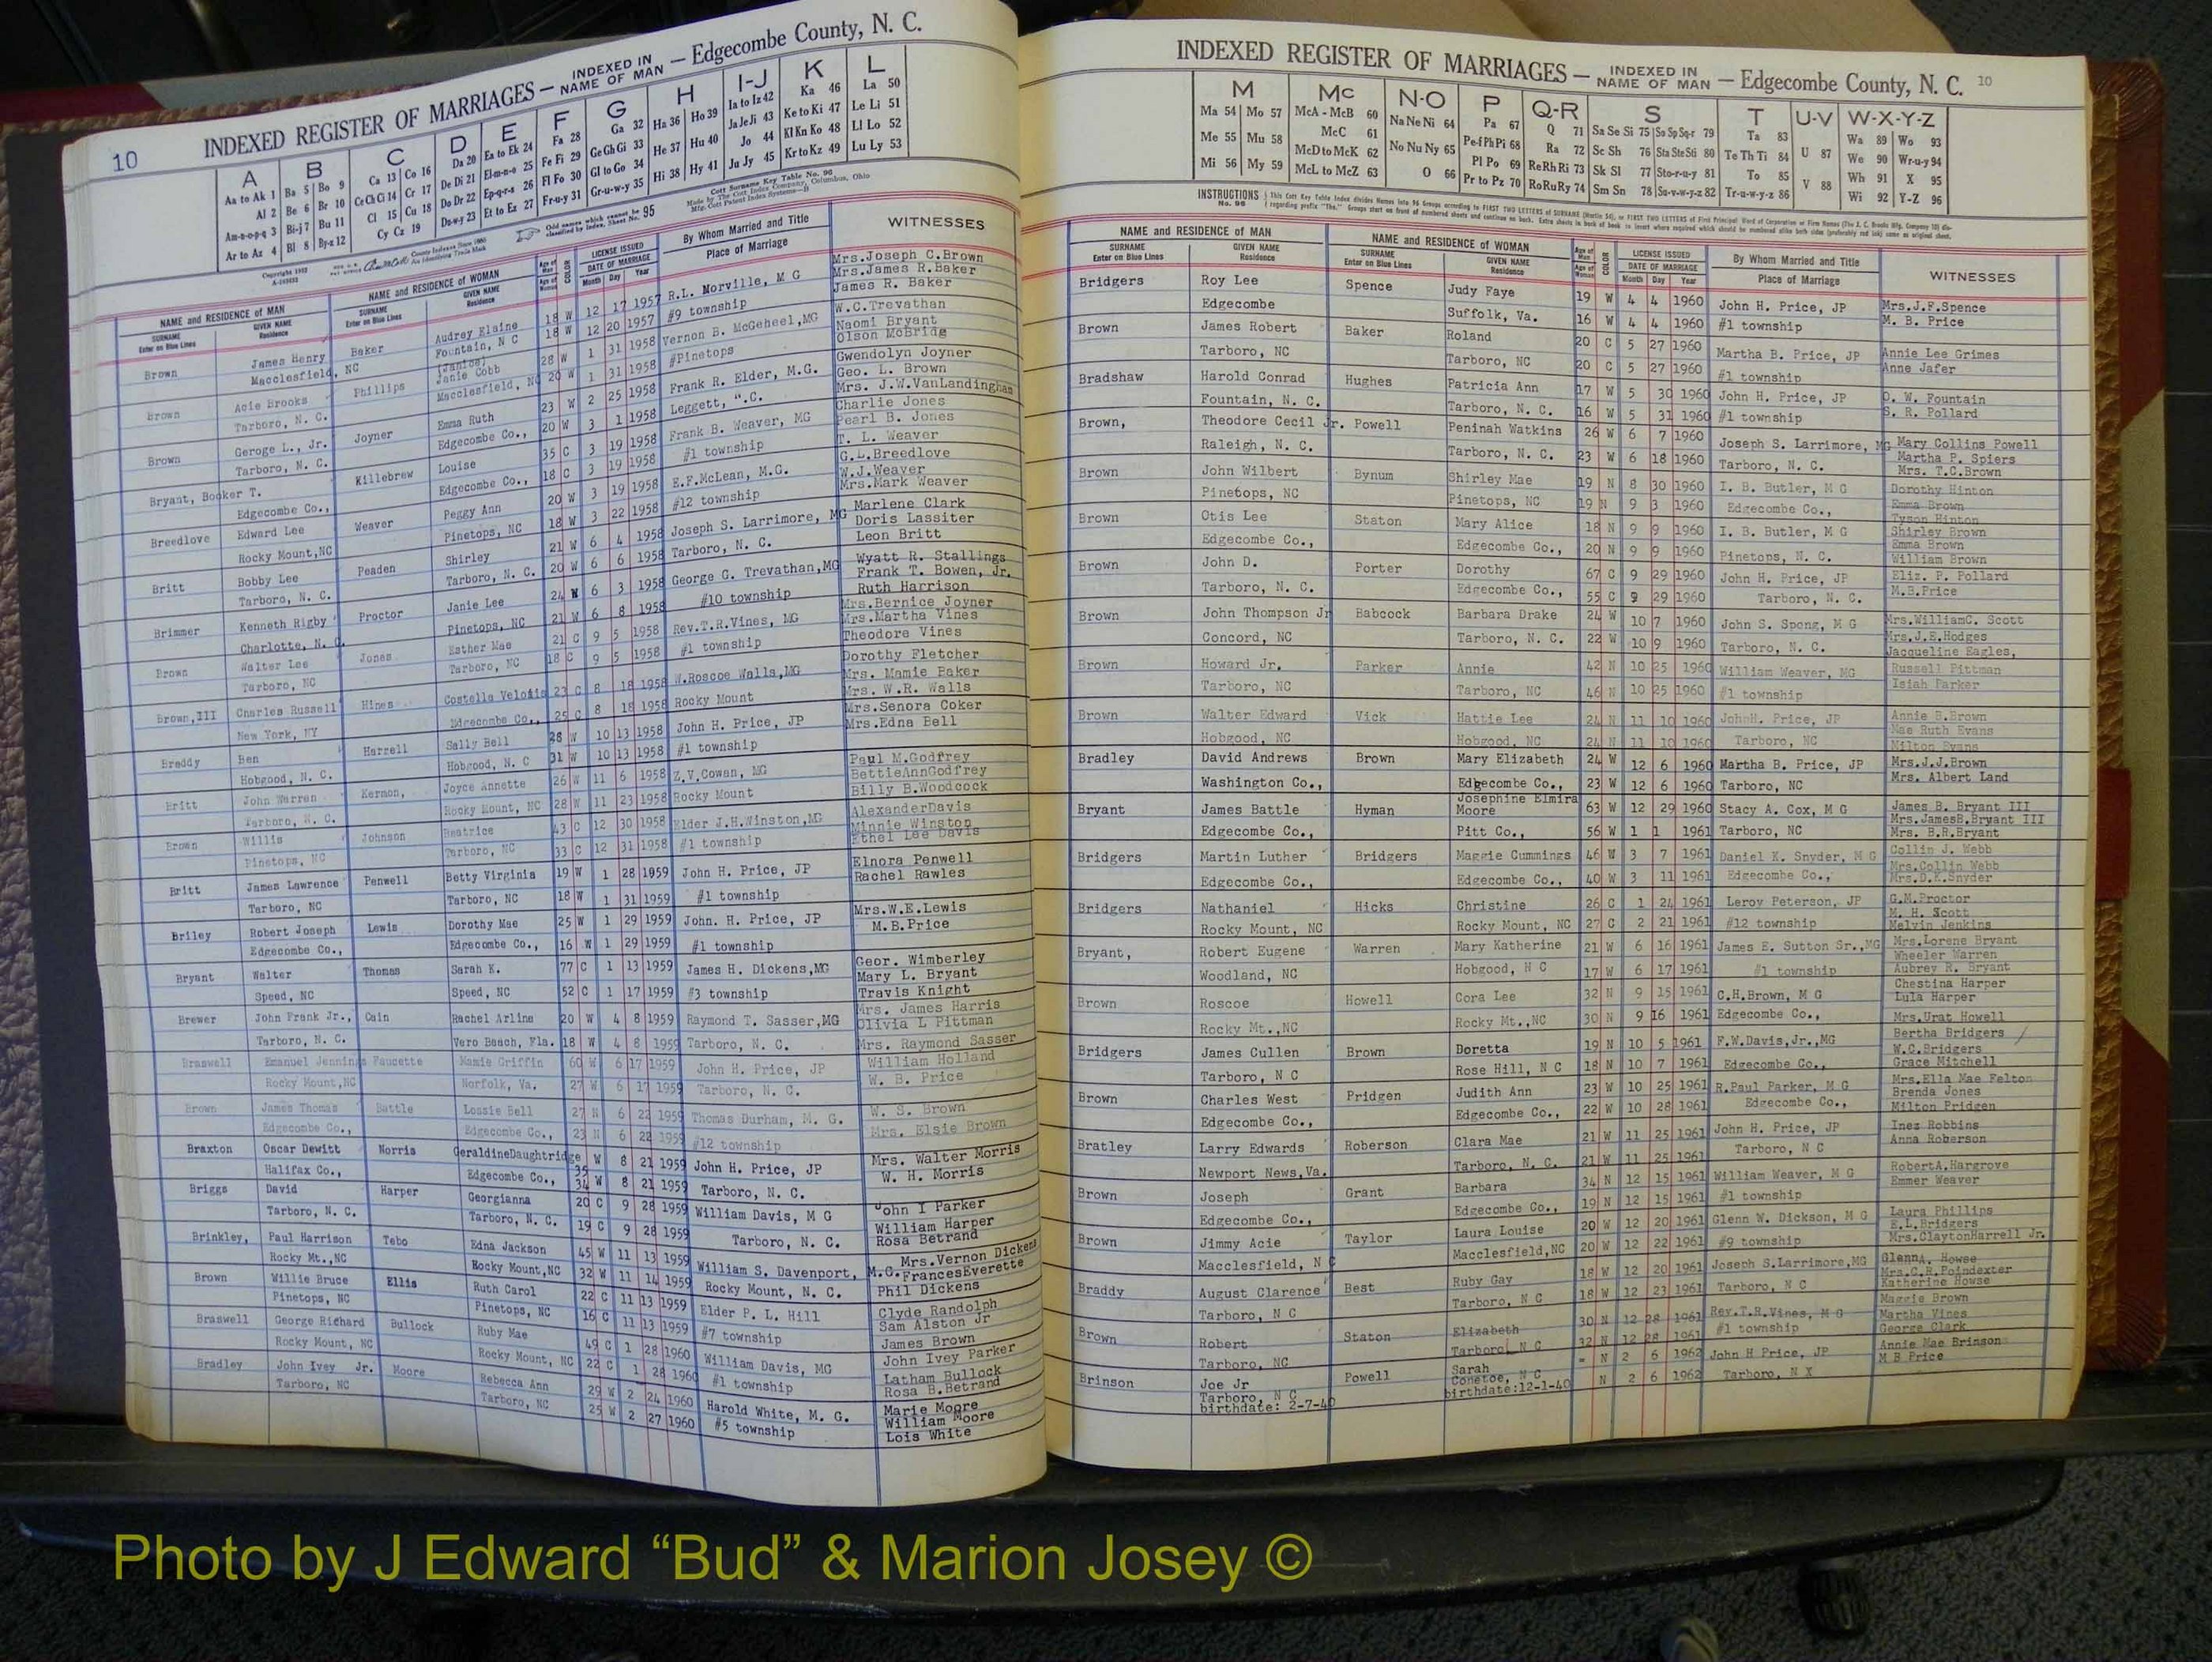 10
INDEXED REGISTER OF MARRIAGES — INDEXED IN NAME OF MAN — Edgecombe County, N. C.
A B C D E F G H I-J K L
Aa to Ak 1 Ba 5 Bo 9 Ca 13 Co 16 Da 20 Ea to Ek 24 Fa 28 Ga 32 Ha 36 Ho 39 Ia to Iz 42 Ka 46 La 50
Al 2 Be 6 Br 10 Ce Ch Ci 14 Cr 17 De Di 21 El-m-n-o 25 Fe Fi 29 Ge Gh Gi 33 He 37 Hu 40 Ja Je Ji 43 Ke to Ki 47 Le Li 51
Am-n-o-p-q 3 Bi-j 7 Bu 11 Cl 15 Cu 18 Do Dr 22 Ep-q-r-s 26 Fl Fo 30 Gl to Go 34 Hi 38 Hy 41 Jo 44 Kl Kn Ko 48 Ll Lo 52
Ar to Az 4 Bl 8 By-z 12 Cy Cz 19 Du-w-y 23 Et to Ez 27 Fr-u-y 31 Gr-u-w-y 35 Ju Jy 45 Kr to Kz 49 Lu Ly 53
NAME and RESIDENCE of MAN NAME and RESIDENCE of WOMAN COLOR LICENSE ISSUED By Whom Married and Title WITNESSES
SURNAME GIVEN NAME SURNAME GIVEN NAME DATE OF MARRIAGE Place of Marriage
Enter on Blue Lines Residence Enter on Blue Lines Residence Month Day Year
Mrs.Joseph C.Brown
Brown James Henry Baker Audrey Elaine 18 W 12 17 1957 R.L. Morville, M G Mrs.James R.Baker
Macclesfield, NC Fountain, N C 18 W 12 20 1957 #9 township James R. Baker
Brown Acie Brooks Phillips (Janice) Janie Cobb 28 W 1 31 1958 Vernon B. McGeheel,MG W.C.Trevathan
Tarboro, N. C. Macclesfield, NC 20 W 1 31 1958 #Pinetops Naomi Bryant
Olson McBride
Brown Geroge L., Jr. Joyner Emma Ruth 23 W 2 25 1958 Frank R. Elder, M.G. Gwendolyn Joyner
Tarboro, N. C. Edgecombe Co., 20 W 3 1 1958 Leggett, ".C. Geo. L. Brown
Mrs. J.W.VanLandingham
Bryant, Booker T. Killebrew Louise 35 C 3 19 1958 Frank B. Weaver, MG Charlie Jones
Edgecombe Co., Edgecombe Co., 18 C 3 19 1958 #1 township Pearl B. Jones
T. L. Weaver
Breedlove Edward Lee Weaver Peggy Ann 20 W 3 19 1958 E.F.McLean, M.G. G.L.Breedlove
Rocky Mount,NC Pinetops, NC 18 W 3 22 1958 #12 township W.J.Weaver
Mrs.Mark Weaver
Britt Bobby Lee Peaden Shirley 21 W 6 4 1958 Joseph S. Larrimore, MG Marlene Clark
Tarboro, N. C. Tarboro, N. C. 20 W 6 6 1958 Tarboro, N. C. Doris Lassiter
Leon Britt
Brimmer Kenneth Rigby Proctor Janie Lee 24 W 6 3 1958 George G. Trevathan,MG Wyatt R. Stallings
Charlotte, N. C. Pinetops, NC 21 W 6 8 1958 #10 township Frank T. Bowen, Jr.
Ruth Harrison
Brown Walter Lee Jones Esther Mae 21 C 9 5 1958 Rev.T.R.Vines, MG Mrs.Bernice Joyner
Tarboro, NC Tarboro, NC 18 C 9 5 1958 #1 township Mrs.Martha Vines
Theodore Vines
Brown,III Charles Russell Hines Costella 23 C 8 18 1958 W.Roscoe Walls,MG Dorothy Fletcher
New York, NY Edgecombe Co., 25 C 8 18 1958 Rocky Mount Mrs. Mamie Baker
Mrs. W.R. Walls
Breddy Ben Harrell Sally Bell 28 W 10 13 1958 John H. Price, JP Mrs.Senora Coker
Hobgood, N. C. Hobgood, N. C 31 W 10 13 1958 #1 township Mrs.Edna Bell
Britt John Warren Kernon, Joyce Annette 26 W 11 6 1958 Z.V.Cowan, MG Paul M.Godfrey
Tarboro, N. C. Rocky Mount, NC 28 W 11 23 1958 Rocky Mount BettieAnnGodfrey
Billy B.Woodcock
Brown Willis Johnson Beatrice 43 C 12 30 1958 Elder J.H.Winston,MG AlexanderDavis
Pinetops, NC Tarboro, NC 33 C 12 31 1958 #1 township Minnie Winston
Ethel Lee Davis
Britt James Lawrence Penwell Betty Virginia 19 W 1 28 1959 John H. Price, JP Elnora Penwell
Tarboro, NC Tarboro, NC 18 W 1 31 1959 #1 township Rachel Rawles
Briley Robert Joseph Lewis Dorothy Mae 25 W 1 29 1959 John. H. Price, JP Mrs.W.E.Lewis
Edgecombe Co., Edgecombe Co., 16 W 1 29 1959 #1 township M.B.Price
Bryant Walter Thomas Sarah K. 77 C 1 13 1959 James H. Dickens,MG Geor. Wimberley
Speed, NC Speed, NC 52 C 1 17 1959 #3 township Mary L. Bryant
Travis Knight
Brewer John Frank Jr., Cain Rachel Arline 20 W 4 8 1959 Raymond T. Sasser,MG Mrs. James Harris
Tarboro, N. C. Vero Beach, Fla. 18 W 4 8 1959 Tarboro, N. C. Olivia L Pittman
Mrs. Raymond Sasser
Braswell Emanuel Jennings Faucette Mamie Griffin 60 W 6 17 1959 John H. Price, JP William Holland
Rocky Mount,NC Norfolk, Va. 27 W 6 17 1959 Tarboro, N. C. W. B. Price
Brown James Thomas Battle Lossie Bell 27 N 6 22 1959 Thomas Durham, M. G. W. S. Brown
Edgecombe Co., Edgecombe Co., 23 N 6 22 1959 #12 township Mrs. Elsie Brown
Braxton Oscar Dewitt Norris GeraldineDaughtridge 35 W 8 21 1959 John H. Price, JP Mrs. Walter Morris
Halifax Co., Edgecombe Co., 34 W 8 21 1959 Tarboro, N. C. W. H. Morris
Briggs David Harper Georgianna 20 C 9 28 1959 William Davis, M G John I Parker
Tarboro, N. C. Tarboro, N. C. 19 C 9 28 1959 Tarboro, N. C. William Harper
Rosa Betrand
Brinkley, Paul Harrison Tebo Edna Jackson 45 W 11 13 1959 William S. Davenport, M.G. Mrs.Vernon Dickens
Rocky Mt.,NC Rocky Mount,NC 32 W 11 14 1959 Rocky Mount, N. C. FrancesEverette
Phil Dickens
Brown Willie Bruce Ellis Ruth Carol 22 C 11 13 1959 Elder P. L. Hill Clyde Randolph
Pinetops, NC Pinetops, NC 16 C 11 13 1959 #7 township Sam Alston Jr
James Brown
Braswell George Richard Bullock Ruby Mae 49 C 1 28 1960 William Davis, MG John Ivey Parker
Rocky Mount, NC Rocky Mount, NC 22 C 1 28 1960 #1 township Latham Bullock
Rosa B.Betrand
Bradley John Ivey Jr. Moore Rebecca Ann 29 W 2 24 1960 Harold White, M. G. Marie Moore
Tarboro, NC Tarboro, NC 25 W 2 27 1960 #5 township William Moore
Lois White
INDEXED REGISTER OF MARRIAGES — INDEXED IN NAME OF MAN — Edgecombe County, N. C. 10
M Mc N-O P Q-R S T U-V W-X-Y-Z
Ma 54 Mo 57 McA - McB 60 Na Ne Ni 64 Pa 67 Q 71 Sa Se Si 75 So Sp Sq-r 79 Ta 83 U 87 Wa 89 Wo 93
Me 55 Mu 58 McC 61 No Nu Ny 65 Pe-f Ph Pi 68 Ra 72 Sc Sh 76 Sta Ste Sti 80 Te Th Ti 84 V 88 We 90 Wr-u-y 94
Mi 56 My 59 McD to McK 62 O 66 Pl Po 69 Re Rh Ri 73 Sk Sl 77 Sto-r-u-y 81 To 85 Wh 91 X 95
McL to McZ 63 Pr to Pz 70 Ro Ru Ry 74 Sm Sn 78 Su-v-w-y-z 82 Tr-u-w-y-z 86 Wi 92 Y-Z 96
NAME and RESIDENCE of MAN NAME and RESIDENCE of WOMAN COLOR LICENSE ISSUED By Whom Married and Title WITNESSES
SURNAME GIVEN NAME SURNAME GIVEN NAME DATE OF MARRIAGE Place of Marriage
Enter on Blue Lines Residence Enter on Blue Lines Residence Month Day Year
Bridgers Roy Lee Spence Judy Faye 19 W 4 4 1960 John H. Price, JP Mrs.J.F.Spence
Edgecombe Suffolk, Va. 16 W 4 4 1960 #1 township M. B. Price
Brown James Robert Baker Roland 20 C 5 27 1960 Martha B. Price, JP Annie Lee Grimes
Tarboro, NC Tarboro, NC 20 C 5 27 1960 #1 township Anne Jafer
Bradshaw Harold Conrad Hughes Patricia Ann 17 W 5 30 1960 John H. Price, JP O. W. Fountain
Fountain, N. C. Tarboro, N. C. 16 W 5 31 1960 #1 township S. R. Pollard
Brown, Theodore Cecil Jr. Powell Peninah Watkins 26 W 6 7 1960 Joseph S. Larrimore, MG Mary Collins Powell
Raleigh, N. C. Tarboro, N. C. 23 W 6 18 1960 Tarboro, N. C. Martha P. Spiers
Mrs. T.C.Brown
Brown John Wilbert Bynum Shirley Mae 19 N 8 30 1960 I. B. Butler, M G Dorothy Hinton
Pinetops, NC Pinetops, NC 19 N 9 3 1960 Edgecombe Co., Emma Brown
Tyson Hinton
Brown Otis Lee Staton Mary Alice 18 N 9 9 1960 I. B. Butler, M G Shirley Brown
Edgecombe Co., Edgecombe Co., 20 N 9 9 1960 Pinetops, N. C. Emma Brown
William Brown
Brown John D. Porter Dorothy 67 C 9 29 1960 John H. Price, JP Eliz. P. Pollard
Tarboro, N. C. Edgecombe Co., 55 C 9 29 1960 Tarboro, N. C. M.B.Price
Brown John Thompson Jr Babcock Barbara Drake 24 W 10 7 1960 John S. Spong, M G Mrs.WilliamC. Scott
Concord, NC Tarboro, N. C. 22 W 10 9 1960 Tarboro, N. C. Mrs.J.E.Hodges
Jacqueline Eagles,
Brown Howard Jr. Parker Annie 42 N 10 25 1960 William Weaver, MG Russell Pittman
Tarboro, NC Tarboro, NC 46 N 10 25 1960 #1 township Isiah Parker
Brown Walter Edward Vick Hattie Lee 24 N 11 10 1960 JohnH. Price, JP Annie B.Brown
Hobgood, NC Hobgood, NC 24 N 11 10 1960 Tarboro, NC Mae Ruth Evans
Milton Evans
Bradley David Andrews Brown Mary Elizabeth 24 W 12 6 1960 Martha B. Price, JP Mrs.J.J.Brown
Washington Co., Edgecombe Co., 23 W 12 6 1960 Tarboro, NC Mrs. Albert Land
Bryant James Battle Hyman Josephine Elmira Moore 63 W 12 29 1960 Stacy A. Cox, M G James B. Bryant III
Edgecombe Co., Pitt Co., 56 W 1 1 1961 Tarboro, NC Mrs.JamesB.Bryant III
Mrs. B.R.Bryant
Bridgers Martin Luther Bridgers Maggie Cummings 46 W 3 7 1961 Daniel K. Snyder, M G Collin J. Webb
Edgecombe Co., Edgecombe Co., 40 W 3 11 1961 Edgecombe Co., Mrs.Collin Webb
Mrs.D.K.Snyder
Bridgers Nathaniel Hicks Christine 26 C 1 24 1961 Leroy Peterson, JP G.M.Proctor
Rocky Mount, NC Rocky Mount, NC 27 C 2 21 1961 #12 township M. H. Scott
Melvin Jenkins
Bryant, Robert Eugene Warren Mary Katherine 21 W 6 16 1961 James E. Sutton Sr.,MG Mrs.Lorene Bryant
Woodland, NC Hobgood, N C 17 W 6 17 1961 #1 township Wheeler Warren
Aubrey R. Bryant
Brown Roscoe Howell Cora Lee 32 N 9 15 1961 C.H.Brown, M G Chestina Harper
Rocky Mt.,NC Rocky Mt.,NC 30 N 9 16 1961 Edgecombe Co., Lula Harper
Mrs.Urat Howell
Bridgers James Cullen Brown Doretta 19 N 10 5 1961 F.W.Davis,Jr.,MG Bertha Bridgers
Tarboro, N C Rose Hill, N C 18 N 10 7 1961 Edgecombe Co., W.C.Bridgers
Grace Mitchell
Brown Charles West Pridgen Judith Ann 23 W 10 25 1961 R.Paul Parker, M G Mrs.Ella Mae Felton
Edgecombe Co., Edgecombe Co., 22 W 10 28 1961 Edgecombe Co., Brenda Jones
Milton Pridgen
Bratley Larry Edwards Roberson Clara Mae 21 W 11 25 1961 John H. Price, JP Inez Robbins
Newport News,Va. Tarboro, N. C. 21 W 11 25 1961 Tarboro, N C Anna Roberson
Brown Joseph Grant Barbara 34 N 12 15 1961 William Weaver, M G RobertA.Hargrove
Edgecombe Co., Edgecombe Co., 19 N 12 15 1961 #1 township Emmer Weaver
Brown Jimmy Acie Taylor Laura Louise 20 W 12 20 1961 Glenn W. Dickson, M G Laura Phillips
Macclesfield, N C Macclesfield,NC 20 W 12 22 1961 #9 township E.L.Bridgers
Mrs.ClaytonHarrell Jr.
Braddy August Clarence Best Ruby Gay 18 W 12 20 1961 Joseph S.Larrimore,MG GlennA. Howse
Tarboro, N C Tarboro, N C 18 W 12 23 1961 Tarboro, N C Mrs.C.R.Poindexter
Katherine Howse
Brown Robert Staton Elizabeth 30 N 12 28 1961 Rev.T.R.Vines, M G Maggie Brown
Tarboro, NC Tarboro, N C 32 N 12 28 1961 #1 township Martha Vines
George Clark
Brinson Joe Jr Powell Sarah = N 2 6 1962 John H Price, JP Annie Mae Brinson
Tarboro, N C Conetoe, N C N 2 6 1962 Tarboro, N X M B Price
birthdate: 2-7-40 birthdate:12-1-40
Photo by J Edward “Bud” & Marion Josey ©